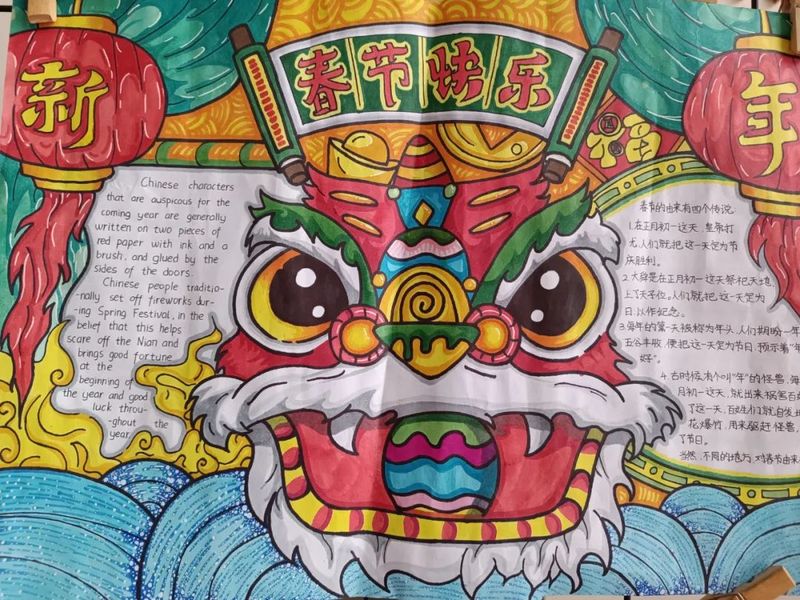 春节快乐
新
年
福
Chinese characters
that are auspicious for the
coming year are generally
written on two pieces of
red paper with ink and a
brush, and glued by the
sides of the doors.
Chinese people traditio-
-nally set off fireworks dur-
-ing Spring Festival, in the
belief that this helps
scare off the Nian and
brings good fortune
at the
beginning of
the year and good
luck throu-
-ghout the
year.
春节的由来有四个传说:
1.在正月初一这天,
人们就把这一天定为节
庆胜利。
2.大舜是在正月初一这天祭祀天地,
上了天子位。人们就把这一天定为
日,以作纪念。
3.每年的第一天被称为年头,人们期盼一年
五谷丰收,便把这一天定为节日,预示着"年
好"。
4.古时候,有个叫"年"的怪兽,每
月初一这天,就出来祸害百
了这一天,百姓们就自发
花爆竹,用来驱赶怪兽,
了节日。
当然,不同的地方,对春节由来